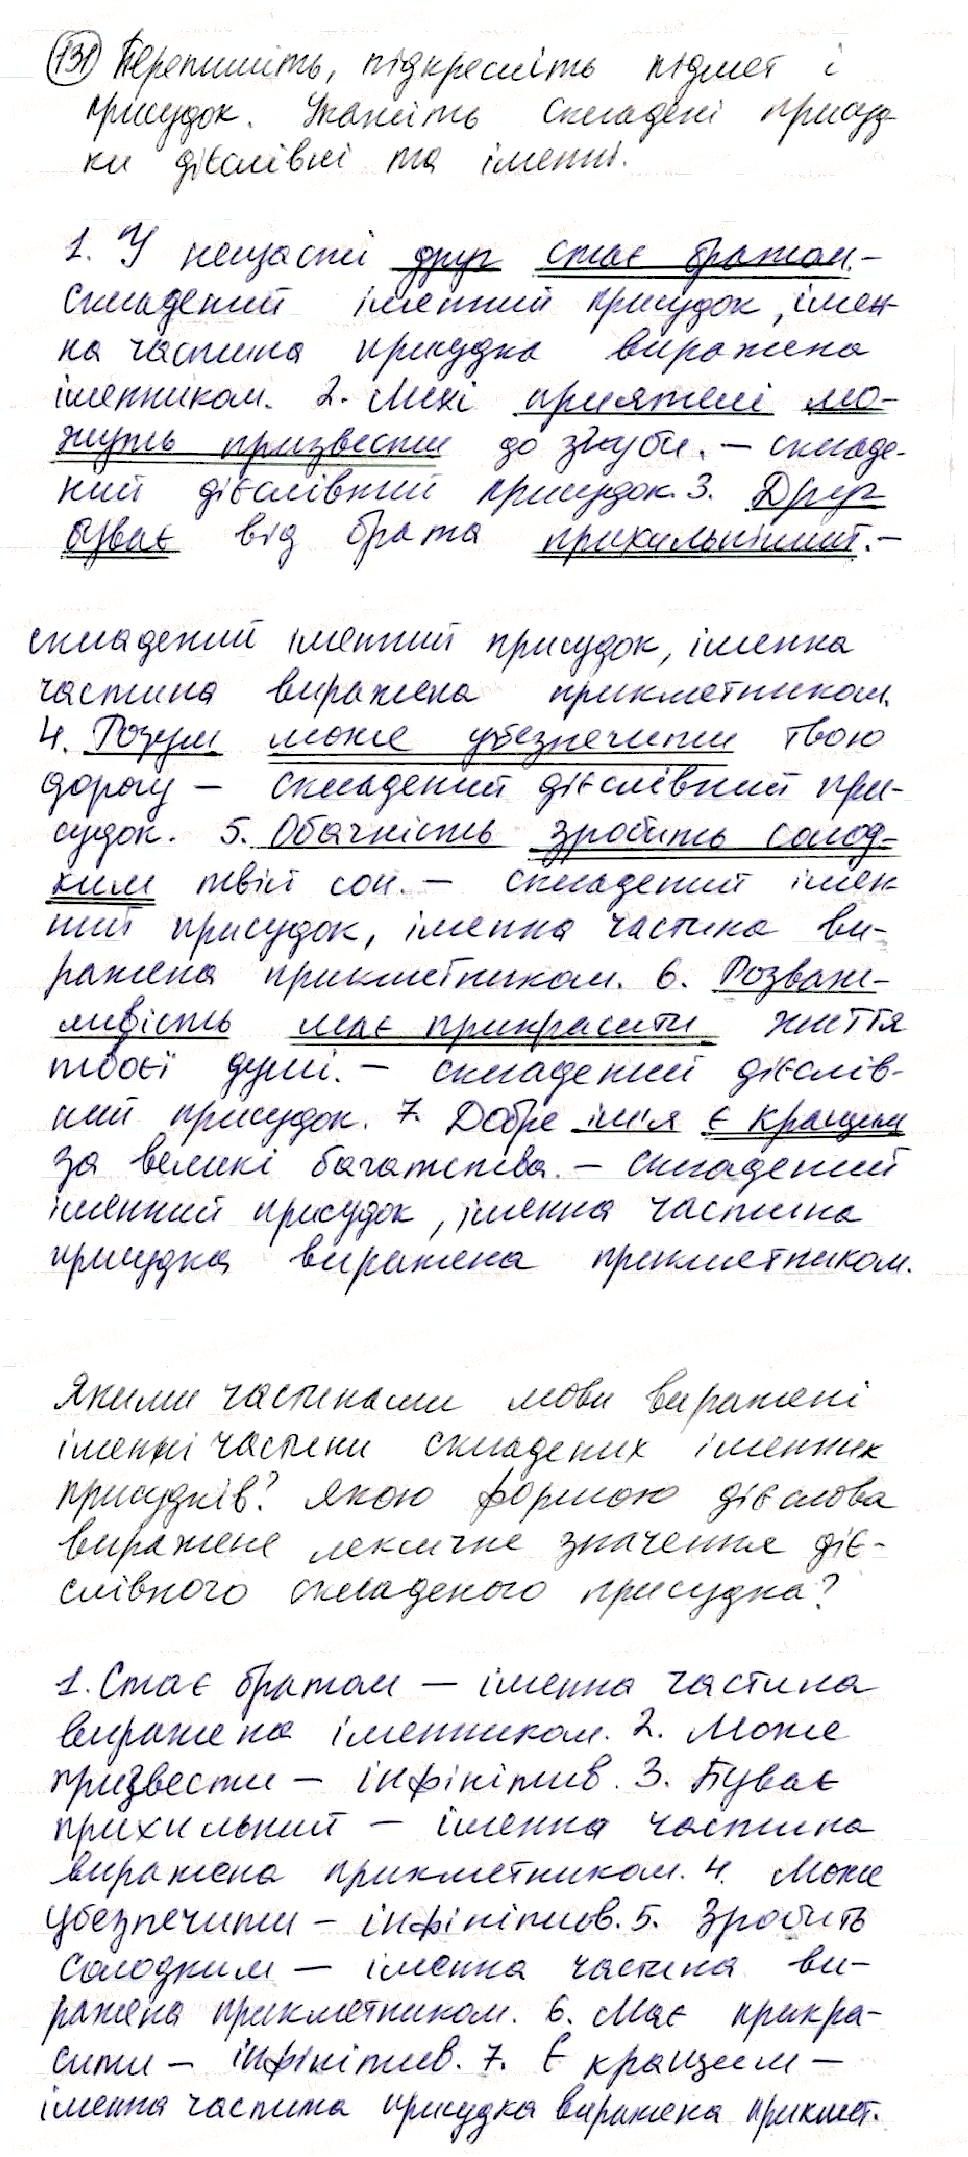 131 Перепишіть, підкресліть підмет і
присудок. Укажіть складені присуд-
ки дієслівні та іменні.
1. У нещасті друг стає братом. –
складений іменний присудок, імен-
на частина присудка виражена
іменником. 2. Лихі приятелі мо-
жуть призвести до згуби. – складе-
ний дієслівний присудок. 3. Друг
буває від брата прихильніший. –
складений іменний присудок, іменна
частина виражена прикметником.
4. Розум може убезпечити твою
дорогу – складений дієслівний при-
судок. 5. Обачність зробить солод-
ким твій сон. – складений імен
ний присудок, іменна частина ви-
ражена прикметником. 6. Розваж-
ливість має прикрасити життя
твоєї душі. – складений дієслів-
ний присудок. 7. Добре ім'я є кращим
за великі багатства. – складений
іменний присудок, іменна частина
присудка виражена прикметником.
Якими частинами мови виражені
іменні частини складених іменних
присудків? Якою формою дієслова
виражене лексичне значення діє-
слівного складеного присудка?
1. Стає братом – іменна частина
виражена іменником. 2. Може
призвести – інфінітив. 3. Буває
прихильний – іменна частина
виражена прикметником. 4. Може
убезпечити – інфінітив. 5. Зробить
солодким – іменна частина ви-
ражена прикметником. 6. Має прикра-
сити – інфінітив. 7. Є кращим –
іменна частина присудка виражена прикмет.